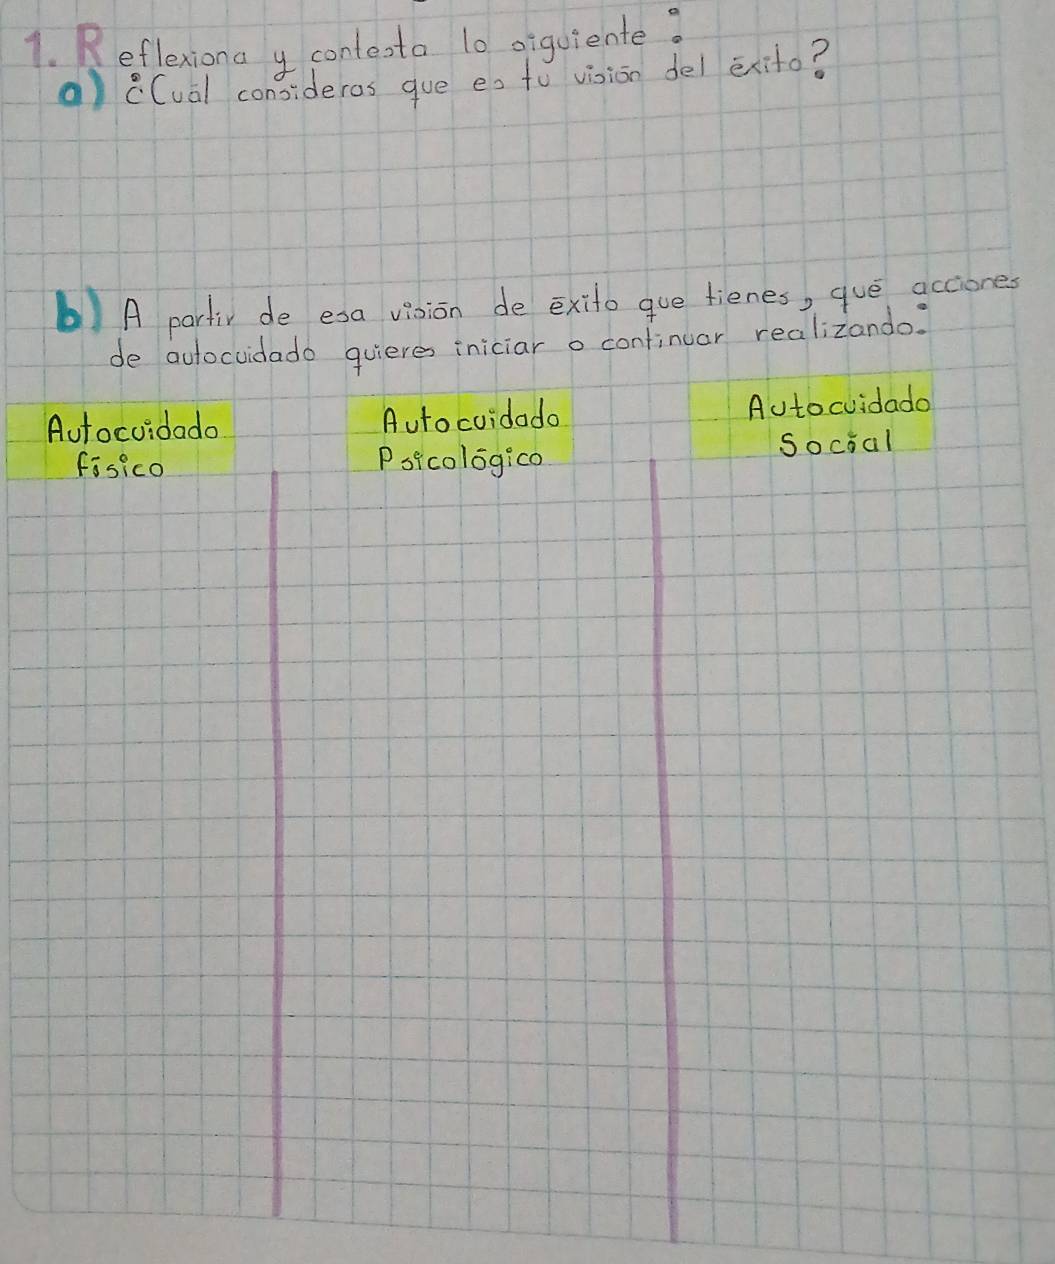 1. Reflexiona y contesta lo siguiente:
a) ¿Cuál consideras que es tu visión del éxito?
b) A partir de esa visión de éxito que tienes, qué acciones
de autocuidado quieres iniciar o continuar realizando:
Autocuidado
físico
Autocuidado
Psicológico
Autocuidado
Social